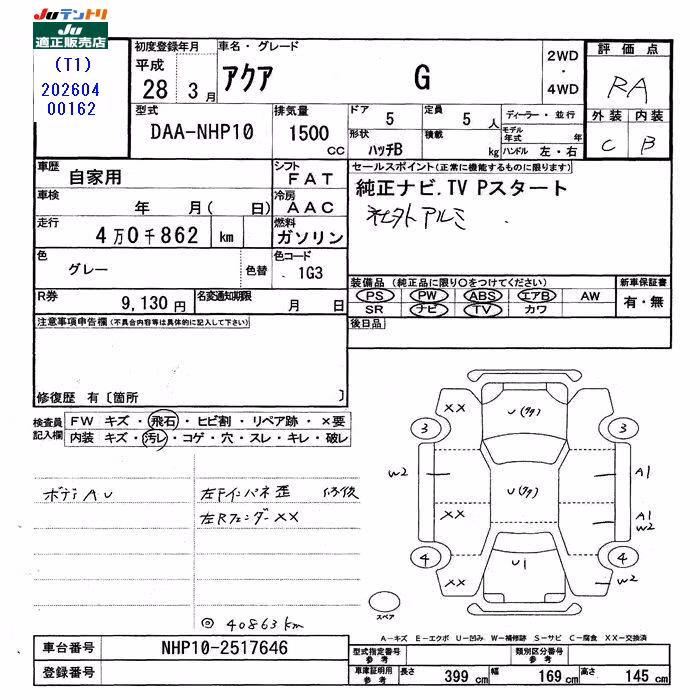 JUテントリ
JU
適正販売店
(T1)
202604
00162
初度登録年月
平成
28年 3月
車名・グレード
アクア G
2WD
・
4WD
評価点
RA
外装 内装
C B
型式
DAA-NHP10
排気量
1500
CC
ドア
5
定員
5 人
形状
ハッチB
積載
kg
ディーラー・並行
モデル年式 年
ハンドル 左・右
車歴
自家用
シフト
FAT
セールスポイント(正常に機能するものに限ります)
純正ナビ.TV Pスタート
社外アルミ
車検
年 月( 日)
冷房
AAC
走行
4万0千862 km
燃料
ガソリン
色
グレー
色替
色コード
1G3
装備品 (純正品に限り○をつけてください)
PS PW ABS エアB AW
SR ナビ TV カワ
新車保証書
有・無
R券
9,130円
名変通知期限
月 日
後日品
注意事項申告欄(不具合内容等は具体的に記入して下さい)
修復歴 有〔箇所 〕
検査員
記入欄
FW キズ・飛石・ヒビ割・リペア跡・×要
内装 キズ・汚レ・コゲ・穴・スレ・キレ・破レ
ボディAU
左Fインパネ歪 修後
左Rフェンダー××
◎ 40863km
XX
U(タタ)
3
3
W2
A1
U(タタ)
XX
A1
W2
4
4
U1
XX
W2
スペア
A-キズ E-エクボ U-凹み W-補修跡 S-サビ C-腐食 XX-交換済
車台番号
NHP10-2517646
登録番号
型式指定番号
参考
類別区分番号
参考
車庫証明用
参考
長さ 399 cm
幅 169 cm
高さ 145 cm